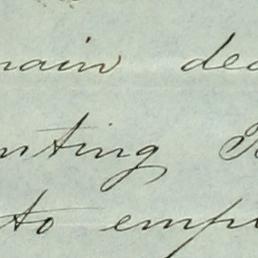 main dea
nting
to emp